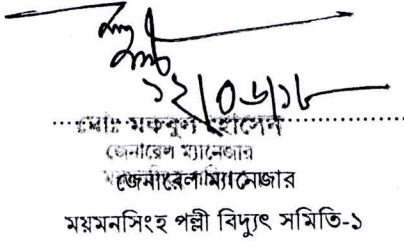 ১২/০৬/১৮
মোঃ মকবুল হোসেন
জেনারেল ম্যানেজার
জেনারেল ম্যানেজার
ময়মনসিংহ পল্লী বিদ্যুৎ সমিতি-১